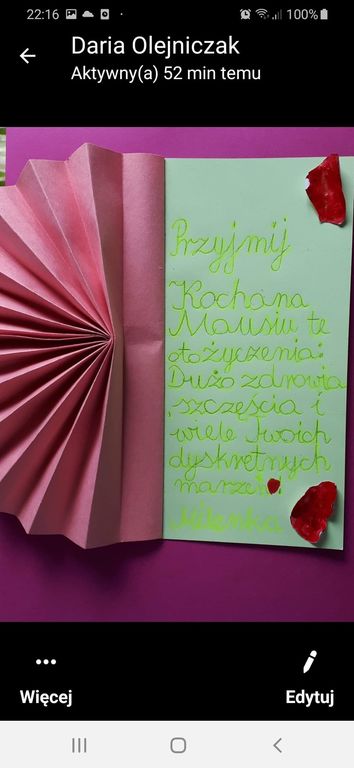 22:16
100%
Daria Olejniczak
Aktywny(a) 52 min temu
Przyjmij
Kochana
Mausiu te
oto życzenia:
Dużo zdrowia
, szczęścia i
wiele Twoich
dyskretnych
marzeń!
Milenka
Więcej
Edytuj